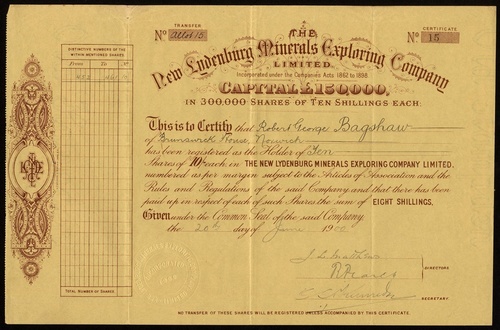 TRANSFER
No allot 15
CERTIFICATE
No 15
THE
New Lydenburg Minerals Exploring Company
LIMITED.
Incorporated under the Companies Acts 1862 to 1898
CAPITAL £150,000,
IN 300,000 SHARES OF TEN SHILLINGS EACH.
DISTINCTIVE NUMBERS OF THE
WITHIN-MENTIONED SHARES
From To No
This is to Certify that Robert George Bagshaw
of Brunswick House, Norwich
has been registered as the Holder of Ten
Shares of 10/- each in THE NEW LYDENBURG MINERALS EXPLORING COMPANY LIMITED,
numbered as per margin subject to the Articles of Association and the
Rules and Regulations of the said Company and that there has been
paid up on respect of each of such Shares the sum of EIGHT SHILLINGS.
Given under the Common Seal of the said Company,
the 20th day of June 1900
DIRECTORS
SECRETARY
TOTAL NUMBER OF SHARES
NO TRANSFER OF THESE SHARES WILL BE REGISTERED UNLESS ACCOMPANIED BY THIS CERTIFICATE.